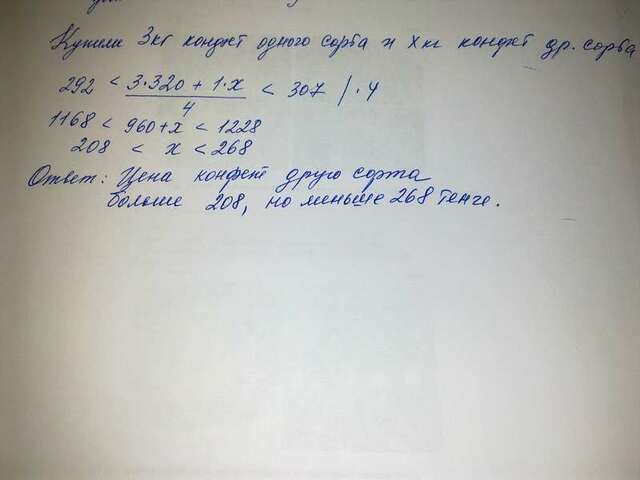 Купили 3кг конфет одного сорта и x кг конфет др. сорта
292 < (3·320 + 1·x)/4 < 307 / · 4
1168 < 960+x < 1228
208 < x < 268
Ответ: Цена конфет друго сорта
больше 208, но меньше 268 тенге.